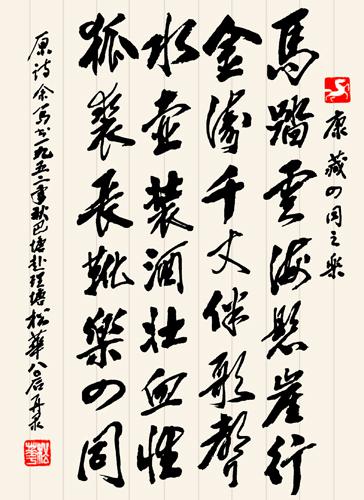 康藏の同之樂
馬踏雲海懸崖行
金濤千丈伴歌聲
水壺裝酒壯血性
狐裘長靴樂の同
原詩余寫於一九五二年秋巴塘赴理塘松華八〇后再录